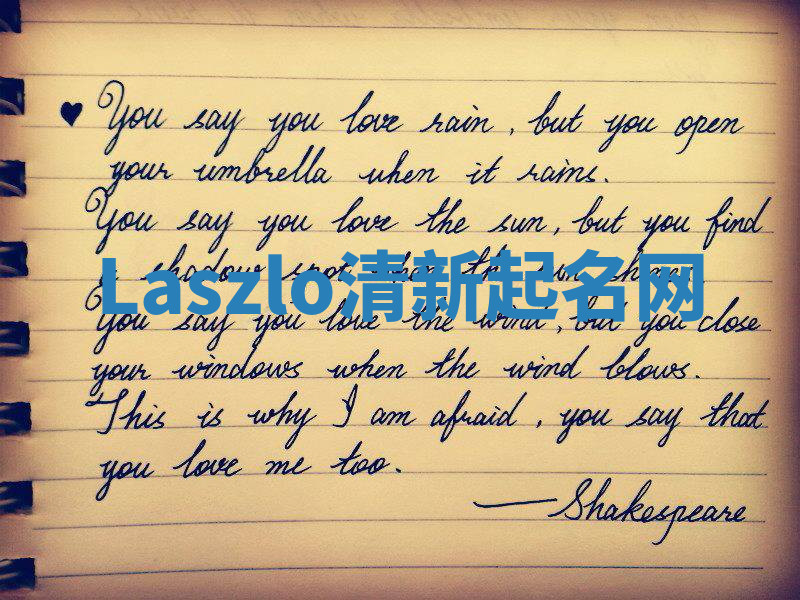 ♥ You say you love rain, but you open
your umbrella when it rains.
You say you love the sun, but you find
a shadow spot when the sun shines.
Laszlo清新起名网
You say you love the wind, but you close
your windows when the wind blows.
This is why I am afraid, you say that
you love me too.
—Shakespeare